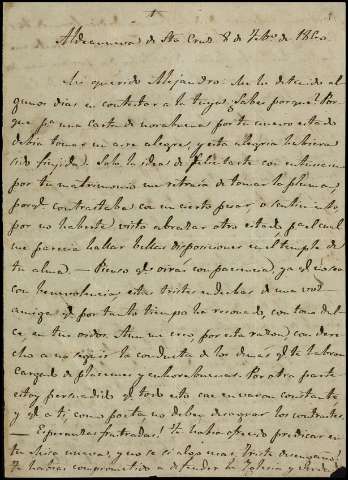 1
Aldeanueva de Sta Cruz 8 de Febro de 1860
Mi querido Alejandro: Me he detenido al
gunos dias en contestar a la tuya ¿Sabes porque? Por
que pa una carta de norabuena por tu nuevo estado
debia tomar un aire alegre, y esta alegria hubiera
sido fingida. Solo la idea de felicitarte con entusiasmo
por tu matrimonio me retraia de tomar la pluma,
porqe contrastaba con un cierto pesar, o sentimto
por no haberte visto abrazar otro estado pa el cual
me parecia hallar bellas disposiciones en el temple de
tu alma. — Pienso qe oirás con paciencia, ya qe no sea
con benevolencia, estas tristes endechas de una voz
amiga qe por tanto tiempo ha resonado, con tono dul-
ce, en tus oidos. Aun me creo, por esta razon con dere
cho a no seguir la conducta de los demas qe te habran
cargado de placemes y enhorabuenas. Por otra parte
estoy persuadido qe todo esto cae en varon constante,
y qe a ti, como poeta no deben desagradar los contrastes.
— Esperanzas frustradas! Te habia ofrecido predicar en
tu Misa nueva, y no se si algo mas. Triste desengaño!
Te habias comprometido a defender la Iglesia y